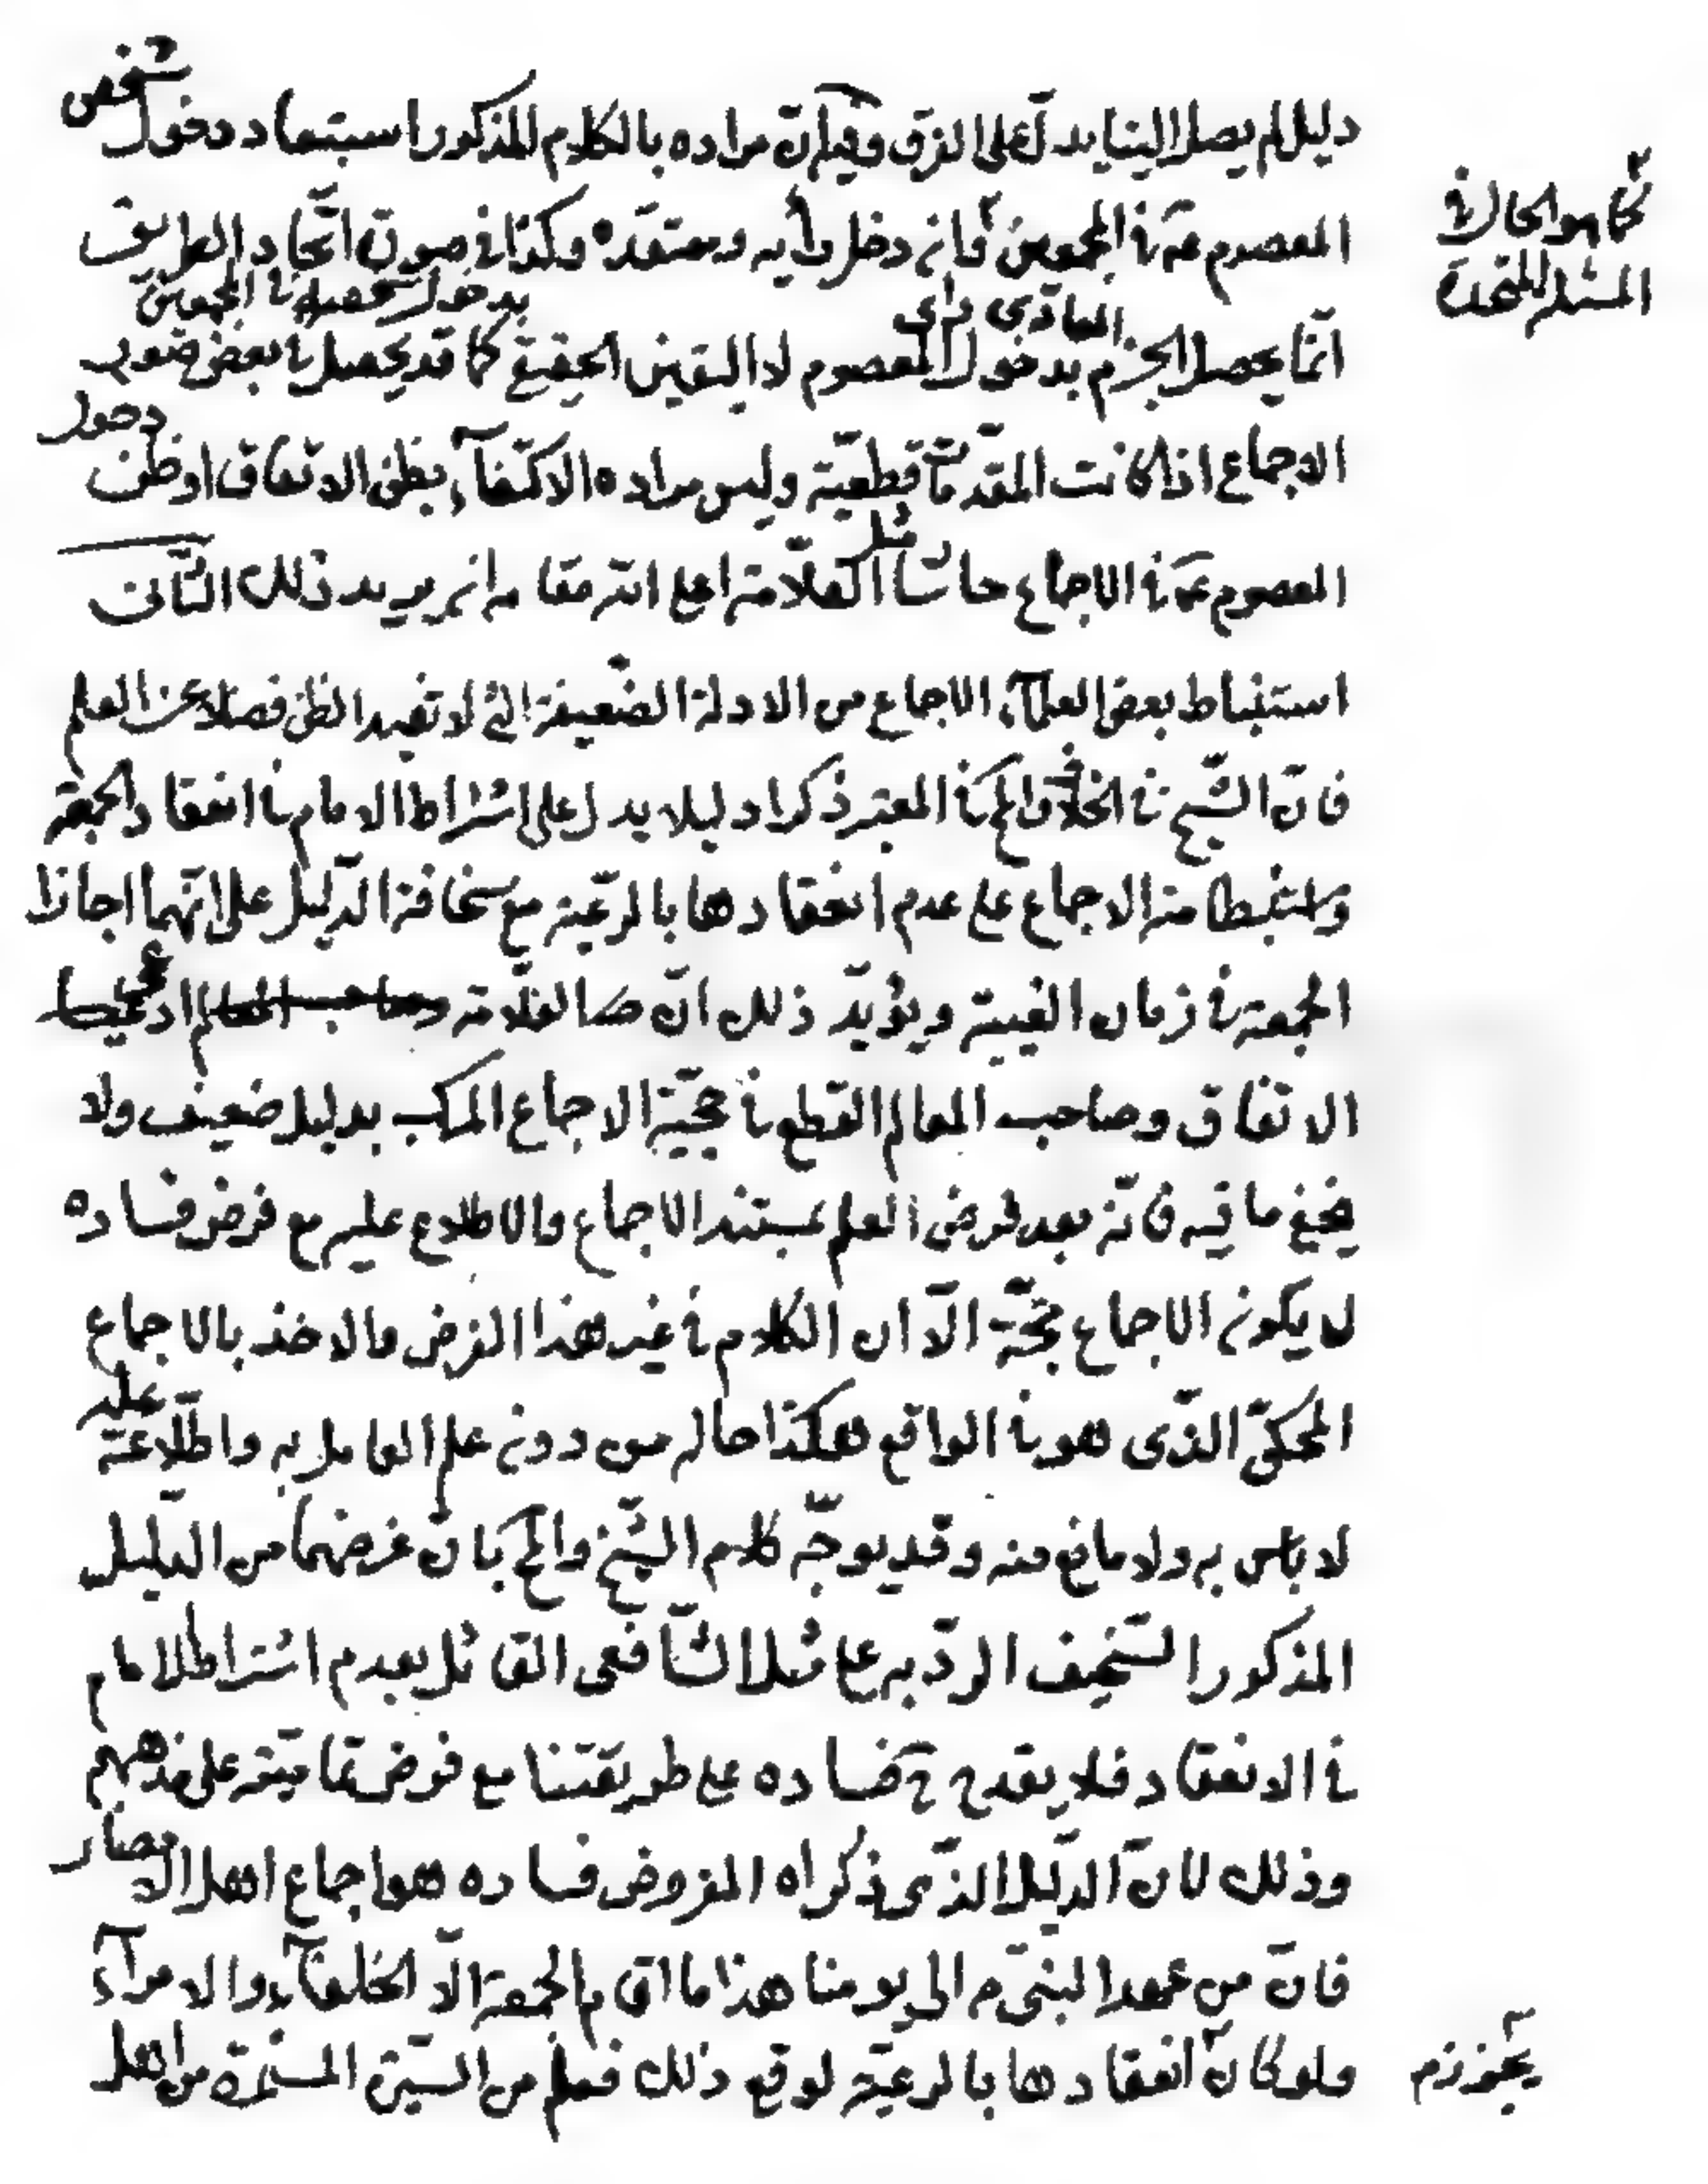 دليل لم يصل الينا يدل على الفرق وفيه ان مراده بالكلام المذكور استبعاد دخول شخص
المعصوم عم في المجمعين فانه دخل رأيه ومعتقده وكذا في صورة اتحاد الطريق
كما هو الحال في
المسئلة المتحدة
انما يحصل الجزم العادى بدخول راى المعصوم لا اليقين الحقيقى بدخول شخصه في المجمعين كما قد يحصل في بعض ضروب
الاجماع اذا كانت المقدمات قطعيّة وليس مراده الاكتفاء بظن الاتفاق او ظن دخول
المعصوم عم في الاجماع حاشا مثل العلّامة اعلى الله مقامه انه يريد ذلك الثانى
استنباط بعض العلماء الاجماع من الادلة الضّعيفة التى لا تفيد الظن فضلا عن العلم
فانّ الشّيخ في الخلاف والمحقق في المعتبر ذكرا دليلا يدل على اشتراط الامام في انعقاد الجمعة
واستنبطا منه الاجماع على عدم انعقادها بالرعيّة مع سخافة الدّليل على انّهما اجازا
الجمعة في زمان الغيبة ويؤيّد ذلك انّ العلّامة ادعى
الاتفاق وصاحب المعالم القطع في حجيّة الاجماع المركب بدليل ضعيف ولا
يخفى ما فيه فانّه بعد فرض العلم بمستند الاجماع والاطلاع عليه مع فرض فساده
لا يكون الاجماع بحجّة الّا ان الكلام في غير هذا الفرض والاخذ بالاجماع
المحكىّ الذّى هو في الواقع هكذا حاله من دون علم العامل به واطّلاعه عليه
لا باس به ولا مانع منه وقد يوجّه كلام الشّيخ والمحقق بان غرضهما من الدّليل
المذكور السّخيف الردّ به على مثل الشّافعى القائل بعدم اشتراط الامام
في الانعقاد فلا يقدح ح فساده على طريقتنا مع فرض تماميّته على مذهبهم
وذلك لانّ الدّليل الذّى ذكراه المفروض فساده هو اجماع اهل الامصار
فانّ من عهد النبىّ م الى يومنا هذا ما اقام الجمعة الّا الخلفاء والامراء
ولو كان انعقادها بالرعيّة لوقع ذلك فعلم من السّيرة المستمرّة من اهل